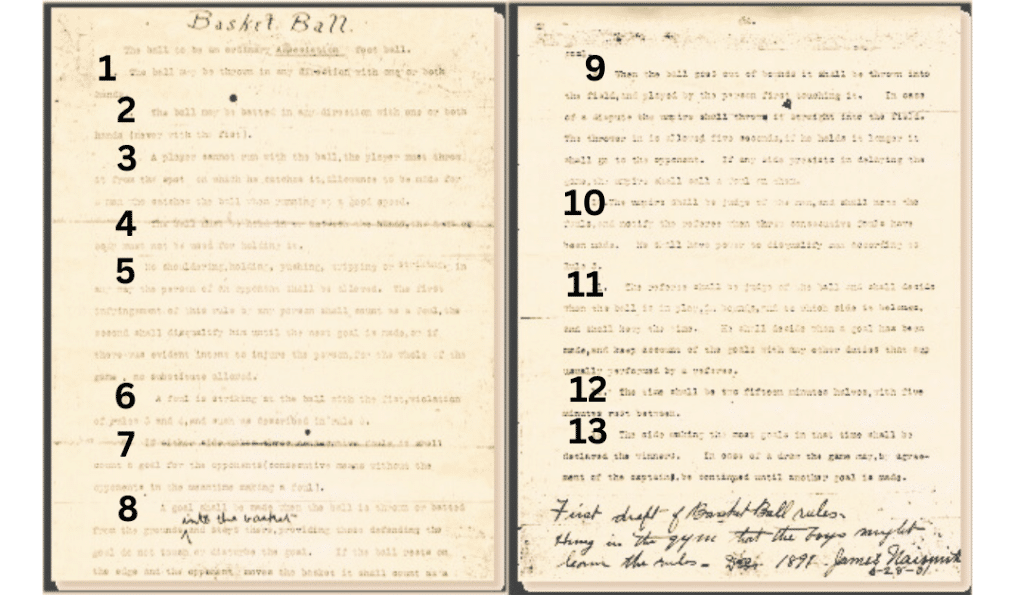 Basket Ball.
The ball to be an ordinary Association foot ball.
1 The ball may be thrown in any direction with one or both
hands.
2 The ball may be batted in any direction with one or both
hands (never with the fist).
3 A player cannot run with the ball,the player must throw
it from the spot on which he catches it,allowance to be made for
a man who catches the ball when running at a good speed.
4 The ball must be held in or between the hands,the arms or
body must not be used for holding it.
5 No shouldering,holding, pushing, tripping or striking, in
any way the person of an opponent shall be allowed. The first
infringement of this rule by any person shall count as a foul,the
second shall disqualify him until the next goal is made,or if
there was evident intent to injure the person,for the whole of the
game , no substitute allowed.
6 A foul is striking at the ball with the fist,violation
of rules 3 and 4,and such as described in rule 5.
7 If either side make three consecutive fouls,it shall
count a goal for the opponents(consecutive means without the
opponents in the meantime making a foul).
8 A goal shall be made when the ball is thrown or batted
into the basket
from the grounds and stays there,providing those defending the
goal do not touch or disturbe the goal. If the ball rests on
the edge and the opponent moves the basket it shall count as a
goal.
9 When the ball goes out of bounds it shall be thrown into
the field,and played by the person first touching it. In case
of a dispute the umpire shall throw it straight into the field.
The thrower in is allowed five seconds,if he holds it longer it
shall go to the opponent. If any side presists in delaying the
game,the umpire shall call a foul on them.
10 The umpire shall be judge of the men,and shall note the
fouls,and notify the referee when three consecutive fouls have
been made. He shall have power to disqualify men according to
Rule 5.
11 The referee shall be judge of the ball and shall decide
when the ball is in play,in bounds,and to which side it belongs,
and shall keep the time. He shall decide when a goal has been
made,and keep account of the goals with any other duties that are
usually performed by a referee.
12 The time shall be two fifteen minutes halves,with five
minutes rest between.
13 The side making the most goals in that time shall be
declared the winners. In case of a draw the game may,by agree-
ment of the captains,be continued until another goal is made.
First draft of Basket Ball rules.
Hung in the gym that the boys might
learn the rules - Dec. 1891 James Naismith
6-28-31